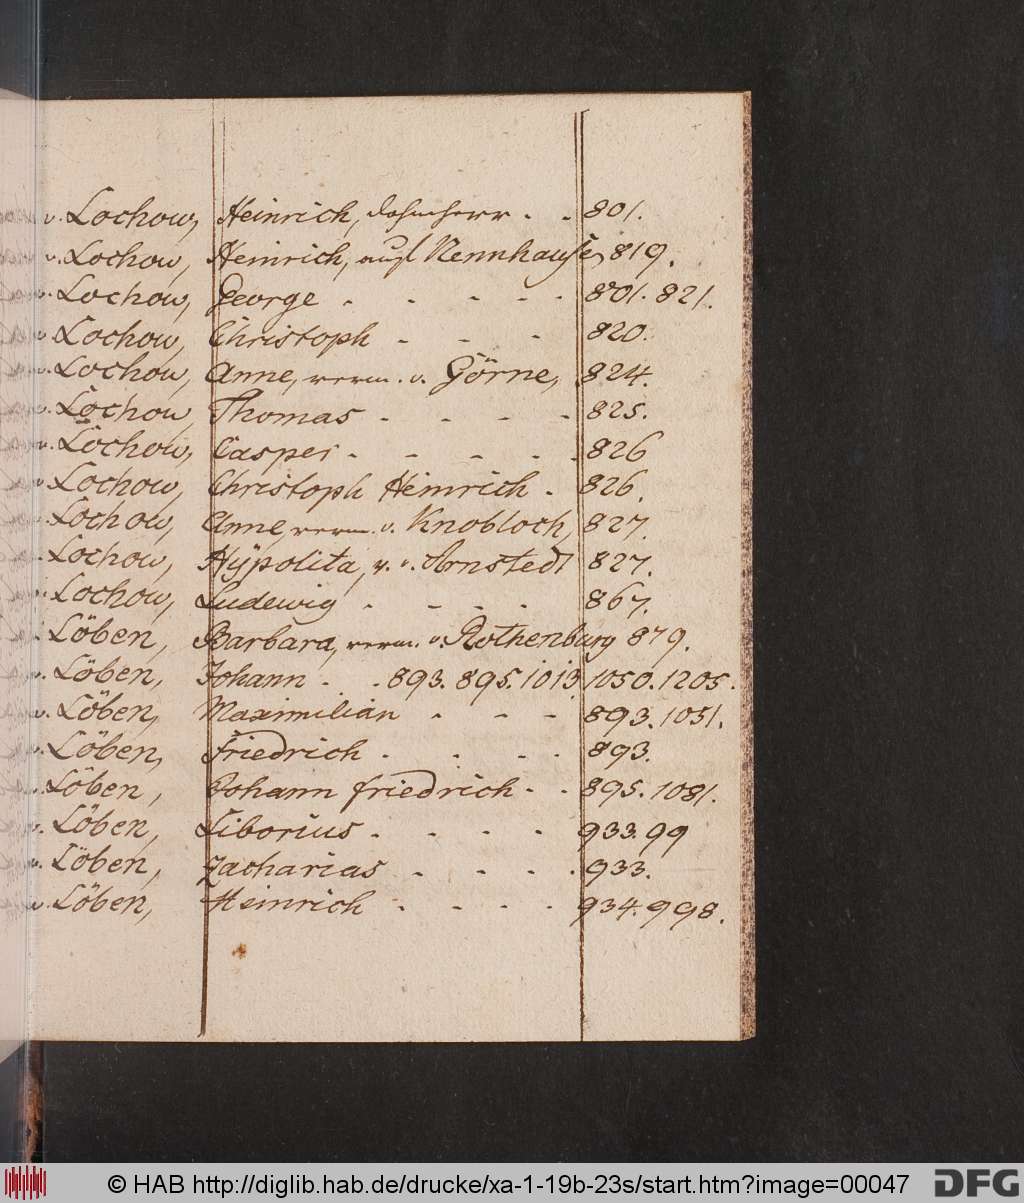 v. Lochow, Heinrich, Domherr - - 801.
v. Lochow, Heinrich, auf Nennhausen, 819.
v. Lochow, George - - - - - 801. 821.
v. Lochow, Christoph - - - 820.
v. Lochow, Anne, verm. v. Görne, 824.
v. Lochow, Thomas - - - - 825.
v. Lochow, Casper - - - - - 826
v. Lochow, Christoph Heinrich - 826.
v. Lochow, Anne verm. v. Knobloch, 827.
v. Lochow, Hÿpolita, v. v. Arnstedt 827.
v. Lochow, Ludewig - - - - 867.
v. Löben, Barbara, verm. v. Rothenburg 879.
v. Löben, Johann - - 893. 895. 1013. 1050. 1205.
v. Löben, Maximilian - - - 893. 1051.
v. Löben, Friedrich - - - - 893.
v. Löben, Johann friedrich - - 895. 1081.
v. Löben, Liborius - - - - 933. 99
v. Löben, Zacharias - - - - 933.
v. Löben, Heinrich - - - - 934. 998.
© HAB http://diglib.hab.de/drucke/xa-1-19b-23s/start.htm?image=00047
DFG